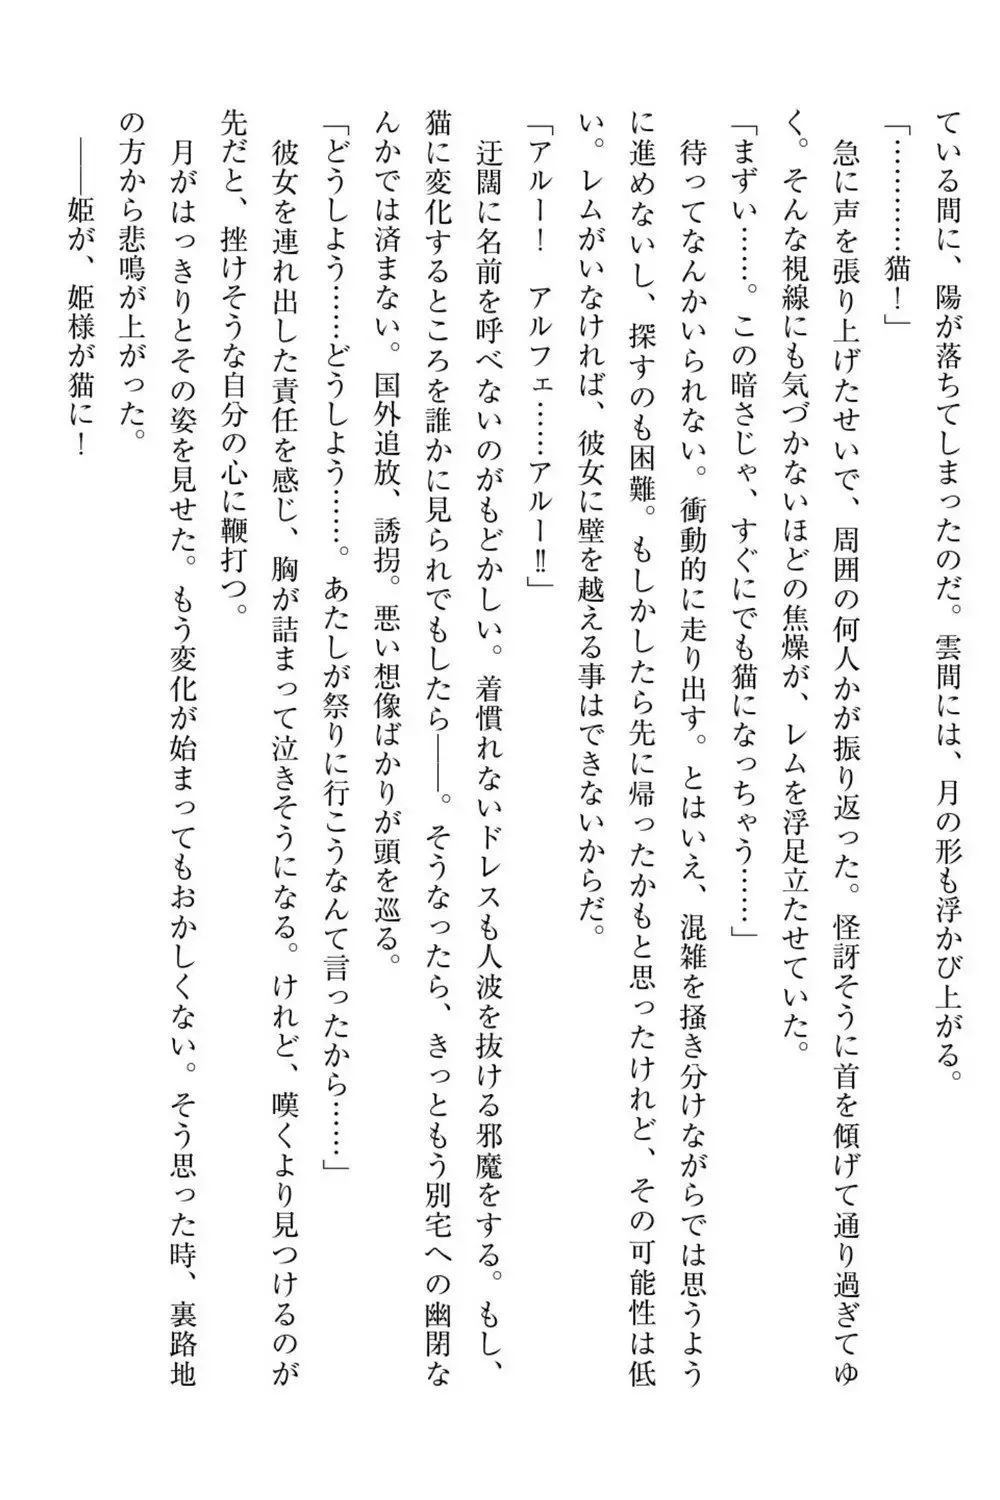 ている間に、陽が落ちてしまったのだ。雲間には、月の形も浮かび上がる。
「…………猫！」
　急に声を張り上げたせいで、周囲の何人かが振り返った。怪訝そうに首を傾げて通り過ぎてゆ
く。そんな視線にも気づかないほどの焦燥が、レムを浮足立たせていた。
「まずい……。この暗さじゃ、すぐにでも猫になっちゃう……」
　待ってなんかいられない。衝動的に走り出す。とはいえ、混雑を掻き分けながらでは思うよう
に進めないし、探すのも困難。もしかしたら先に帰ったかもと思ったけれど、その可能性は低
い。レムがいなければ、彼女に壁を越える事はできないからだ。
「アルー！　アルフェ……アルー‼」
　迂闊に名前を呼べないのがもどかしい。着慣れないドレスも人波を抜ける邪魔をする。もし、
猫に変化するところを誰かに見られでもしたら――。そうなったら、きっともう別宅への幽閉な
んかでは済まない。国外追放、誘拐。悪い想像ばかりが頭を巡る。
「どうしよう……どうしよう……。あたしが祭りに行こうなんて言ったから……」
　彼女を連れ出した責任を感じ、胸が詰まって泣きそうになる。けれど、嘆くより見つけるのが
先だと、挫けそうな自分の心に鞭打つ。
　月がはっきりとその姿を見せた。もう変化が始まってもおかしくない。そう思った時、裏路地
の方から悲鳴が上がった。
　――姫が、姫様が猫に！